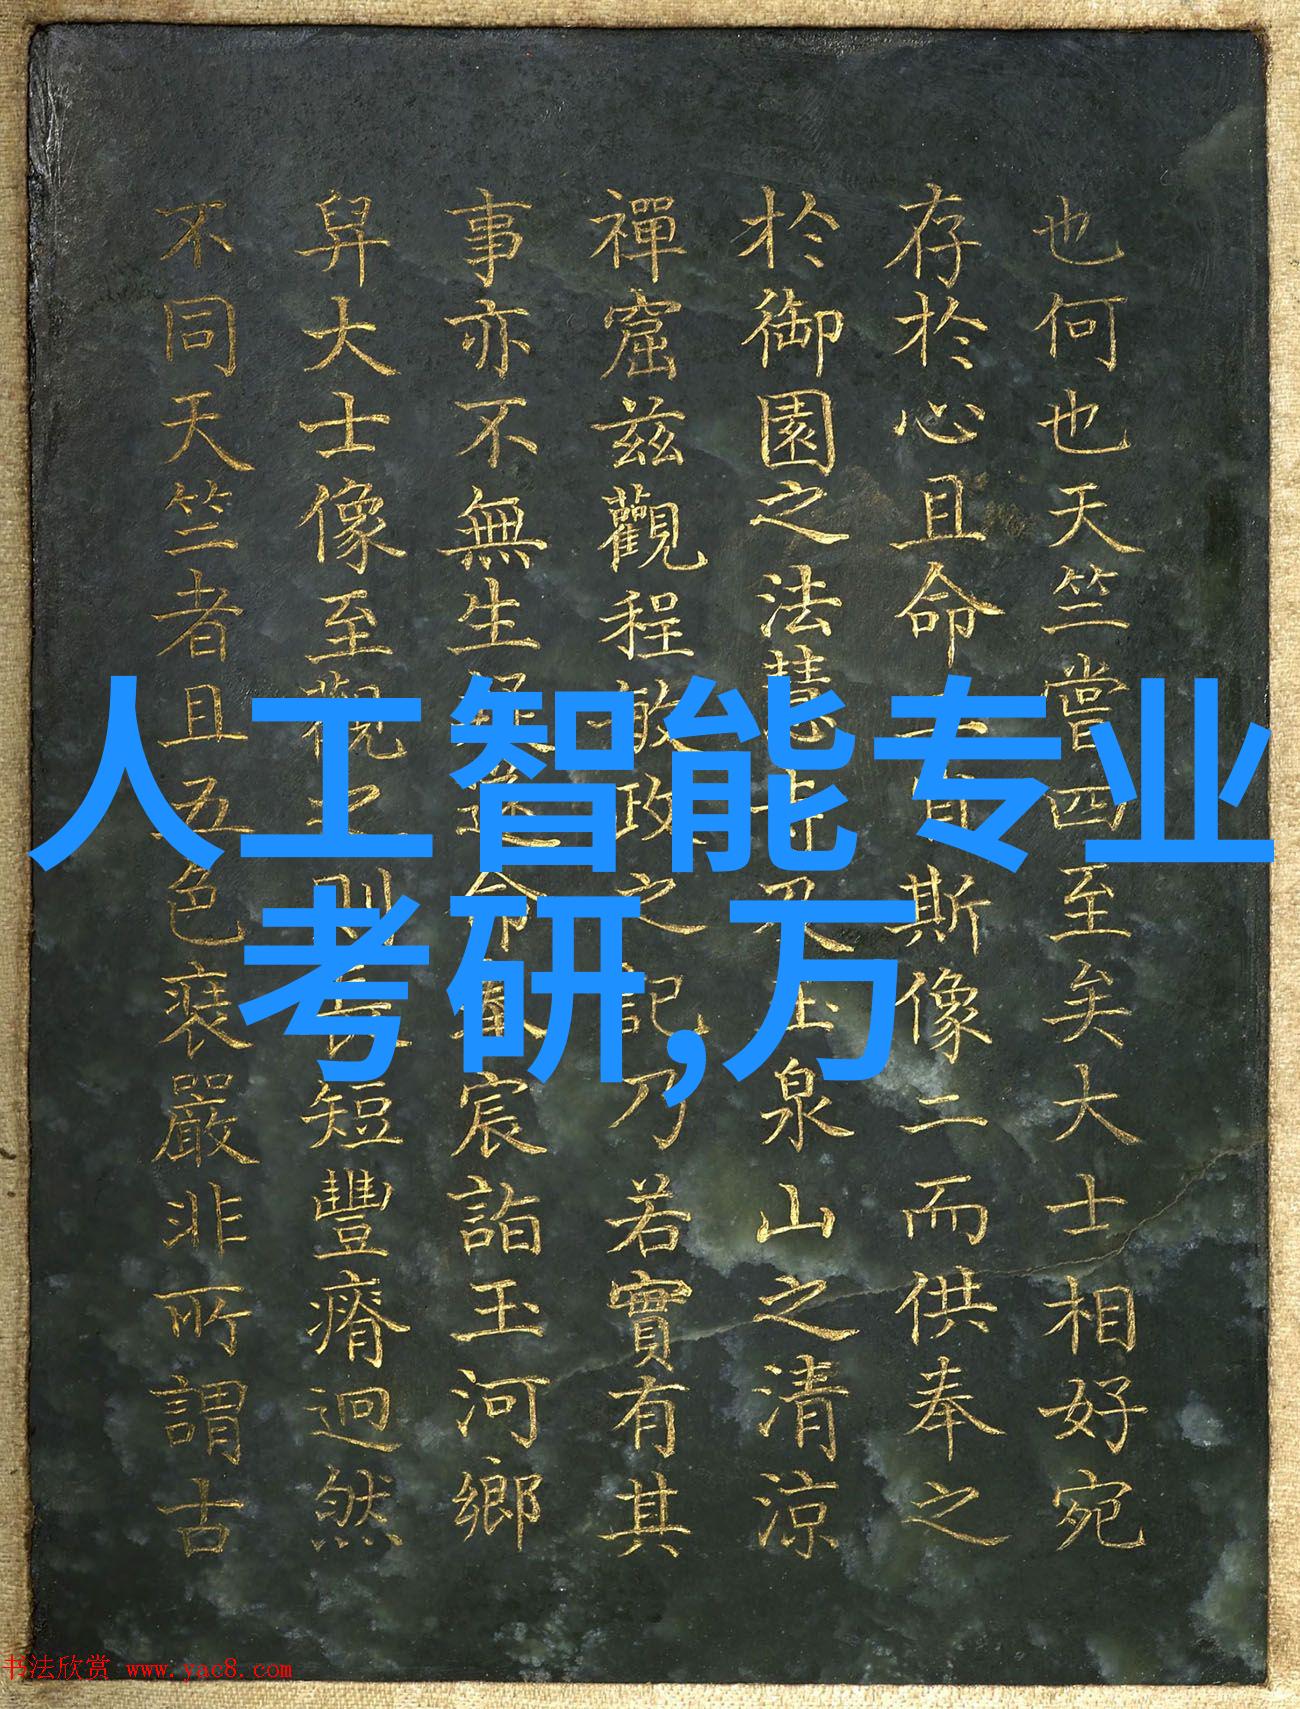 人工智能专业
考研,万
也何也天竺嘗四至矣大士相好宛
存於心且命斯像二而供奉之
於御園之法慧寺及玉泉山之清涼
禪窟茲觀程敏政之記乃若實有其
事亦不無生疑遂命奉宸詣玉河鄉
舁大士像至觀之則長短豐瘠迥然
不同天竺者且五色裝嚴非所謂古
书法欣赏 www.yac8.com